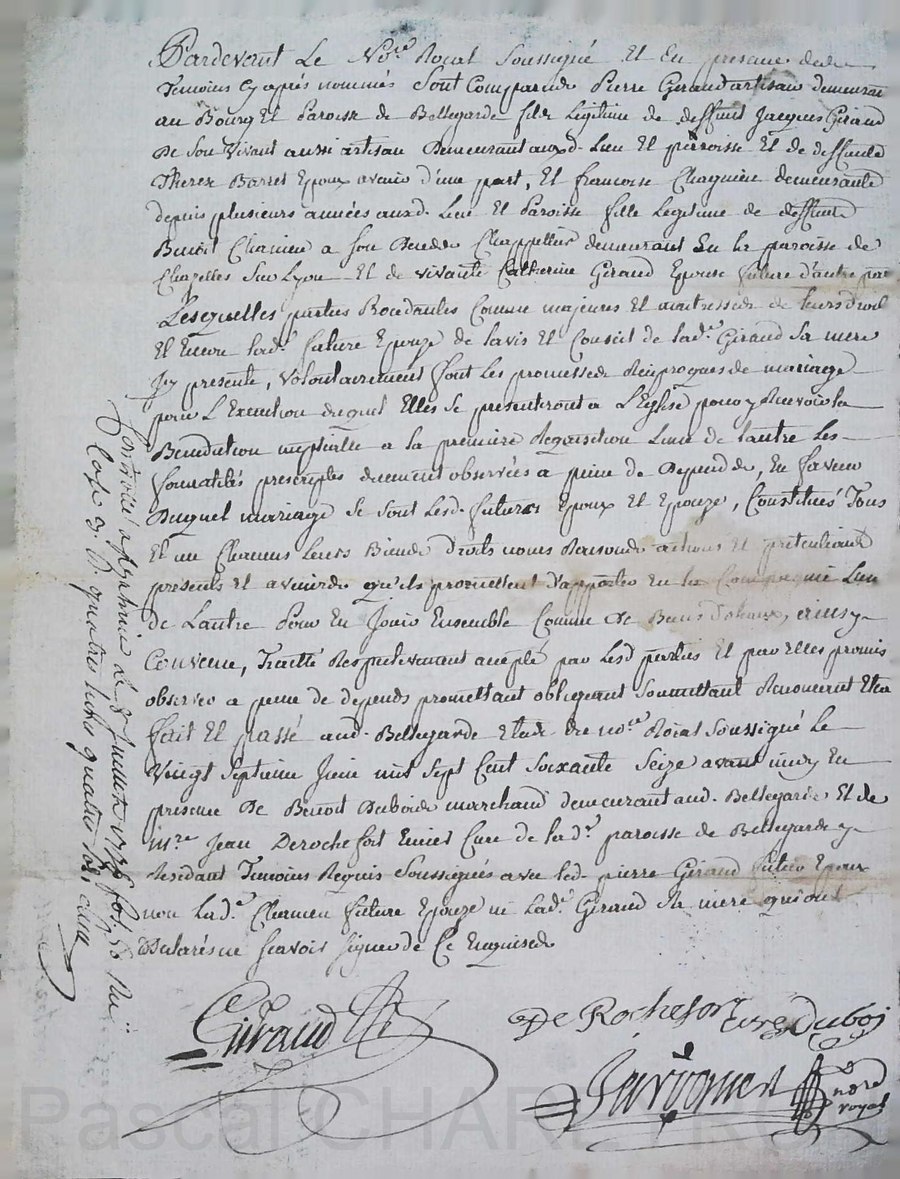 Pardevant Le No.re Royal Soussigné Et En presence des
Temoins cy aprés nommés Sont Comparus Pierre Giraud artisan demeurant
au Bourg Et Paroisse de Bellegarde fils Legitime de deffunt Jacques Giraud
De Son Vivant aussi artisan Demeurant auxd. Lieu Et parroisse Et de deffunte
Therese Barret Epoux avenir d'une part, Et francoise Chaynien demeurante
depuis plusieurs années auxd. Lieu Et Paroisse fille Legitime de deffunt
Benoit Chamieu a Son Chappellier demeurant En la paroisse de
Chazelles Sur Lyon Et de vivante Catherine Giraud Epouse future d'autre part
Lesquelles parties Procedantes Comme majeures Et maitresses de leurs droits
Et Encore lad.e future Epouze de lavis Et Conseil de lad.e Giraud Sa mere
Icy presente, volontairement font Les promesses Reciproques de mariage
pour L'Execution duquel Elles Se presenteront a L'Eglise pour y Recevoir la
Benediction nuptialle a la premiere Requisition Lune de Lautre Les
formalités prescriptes duement observées a peine de Depends, En faveur
Duquel mariage Se Sont Lesd. futurs Epoux Et Epouze, Constitués Tous
Et un Chacuns Leurs Biens Droits noms Raisons actions Et pretentions
presents Et avenirs qu'ils promettent d'apporter En la Compagnie Lun
de Lautre Pour En Jouir Ensemble Comme de Biens Dotaux, ainsy
Convenu, Traitté Respectivement accepté par Lesd parties Et par Elles promis
observer a peine de depends promettant obligeant Soumettant Renoncant Et ca
fait Et passé aud. Bellegarde Etude du no.re Roial Soussigné Le
Vingt Sept Juin mil Sept Cent Soixante Seize avant midy En
presence De Benoit Dubois marchand demeurant aud. Bellegarde Et de
m.re Jean Derochefort Curé de lad.e paroisse de Bellegarde y
Residant Temoins Requis Soussignés avec led. pierre Giraud futur Epoux
non Lad.e Chamieu future Epouze ni Lad.e Giraud Sa mere qui ont
Declarés ne Scavoir Signer de Ce Enquises
Giraud
De Rochefort curé Duboi
no.re
royal
Controllé a le Juillet 1776 fol. 50 Recu
quatre
Pascal CHAREYRON